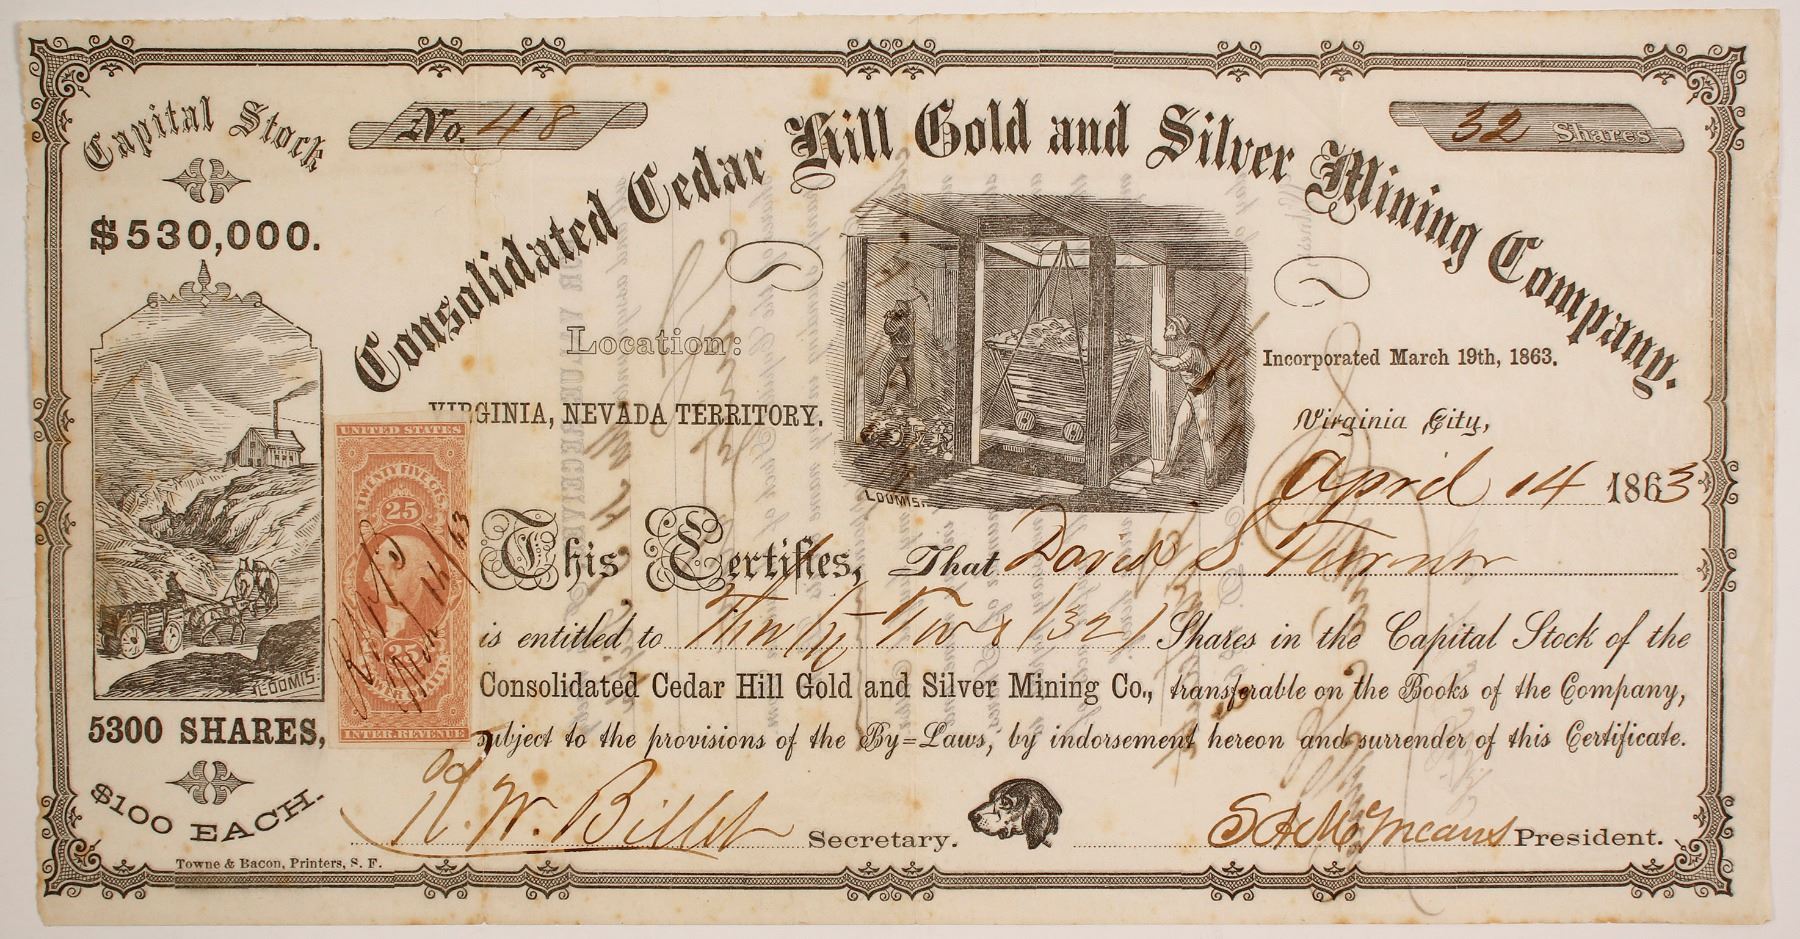 Capital Stock
$530,000.
5300 SHARES,
$100 EACH.
No. 48
32 Shares
Consolidated Cedar Hill Gold and Silver Mining Company.
Location:
VIRGINIA, NEVADA TERRITORY.
Incorporated March 19th, 1863.
Virginia City,
April 14 1863
LOOMIS.
LOOMIS.
UNITED STATES
TWENTY FIVE CTS
25
25
INTER. REVENUE
This Certifies, That David S Turner
is entitled to Thirty Two (32) Shares in the Capital Stock of the
Consolidated Cedar Hill Gold and Silver Mining Co., transferable on the Books of the Company,
subject to the provisions of the By=Laws, by indorsement hereon and surrender of this Certificate.
R. W. Billet Secretary.
President.
Towne & Bacon, Printers, S. F.